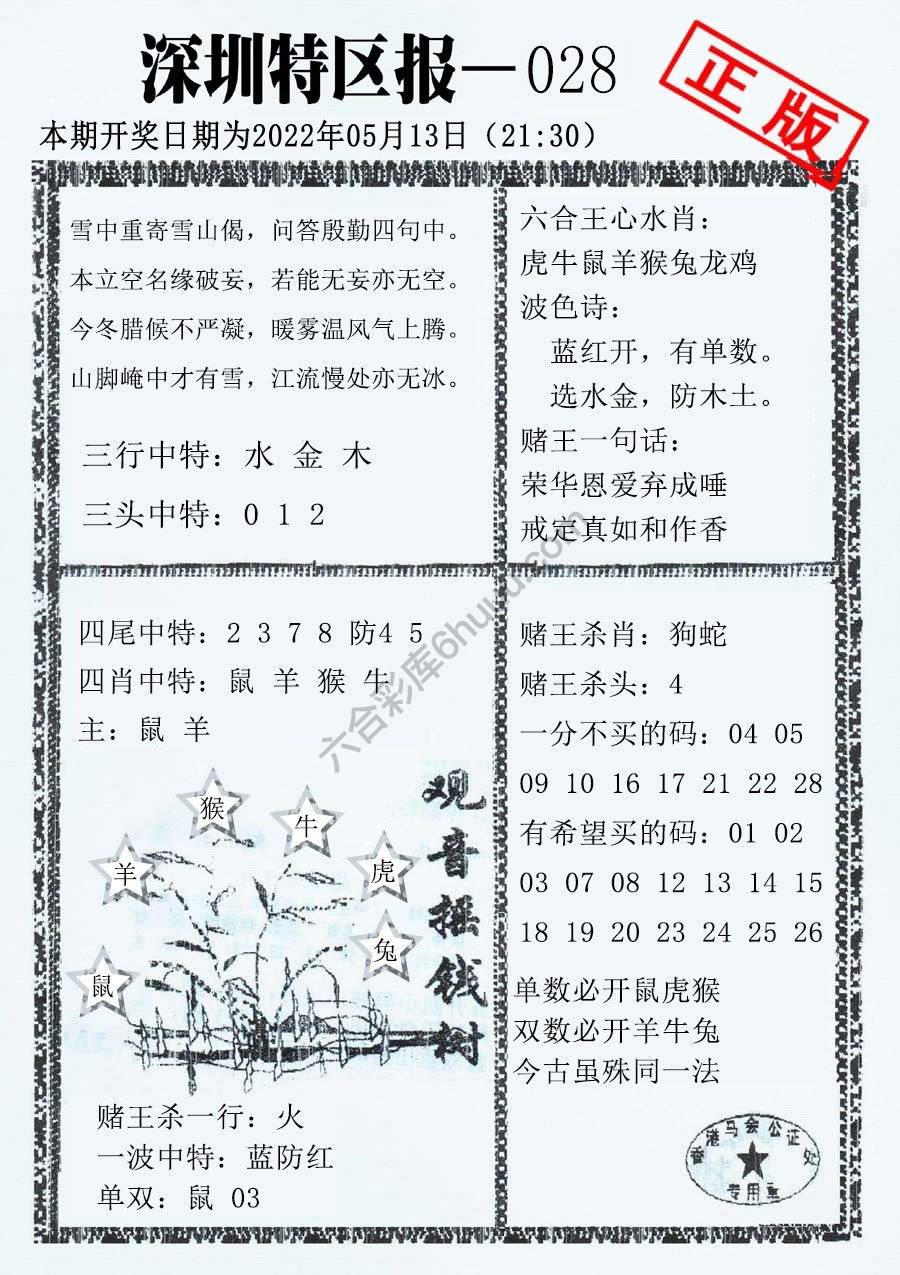 深圳特区报—028
正版
本期开奖日期为2022年05月13日（21:30）
雪中重寄雪山偈，问答殷勤四句中。
本立空名缘破妄，若能无妄亦无空。
今冬腊候不严凝，暖雾温风气上腾。
山脚崦中才有雪，江流慢处亦无冰。
三行中特：水 金 木
三头中特：0 1 2
六合王心水肖：
虎牛鼠羊猴兔龙鸡
波色诗：
蓝红开，有单数。
选水金，防木土。
赌王一句话：
荣华恩爱弃成唾
戒定真如和作香
四尾中特：2 3 7 8 防4 5
四肖中特：鼠 羊 猴 牛
主：鼠 羊
猴
牛
羊
虎
兔
鼠
观音摇钱树
赌王杀一行：火
一波中特：蓝防红
单双：鼠 03
赌王杀肖：狗蛇
赌王杀头：4
一分不买的码：04 05
09 10 16 17 21 22 28
有希望买的码：01 02
03 07 08 12 13 14 15
18 19 20 23 24 25 26
单数必开鼠虎猴
双数必开羊牛兔
今古虽殊同一法
香港马会公证处
专用章
六合彩库6huuu.com